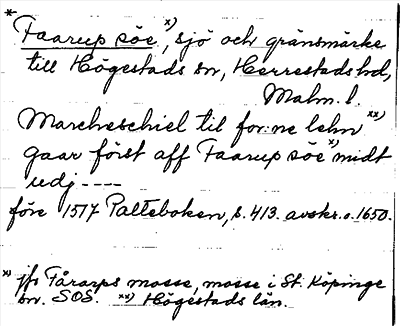 *
Faarup söe x), sjö och gränsmärke
till Högestads sn, Herrestads hd,
Malm. l.
Marcheschiel til for:ne lehn xx)
gaar först aff Faarup söe x) midt
udj ----
före 1517 Palteboken, s. 413. avskr. o. 1650.
x) jfr Fårarps mosse, mosse i St. Köpinge
sn. SOS. xx) Högestads län.